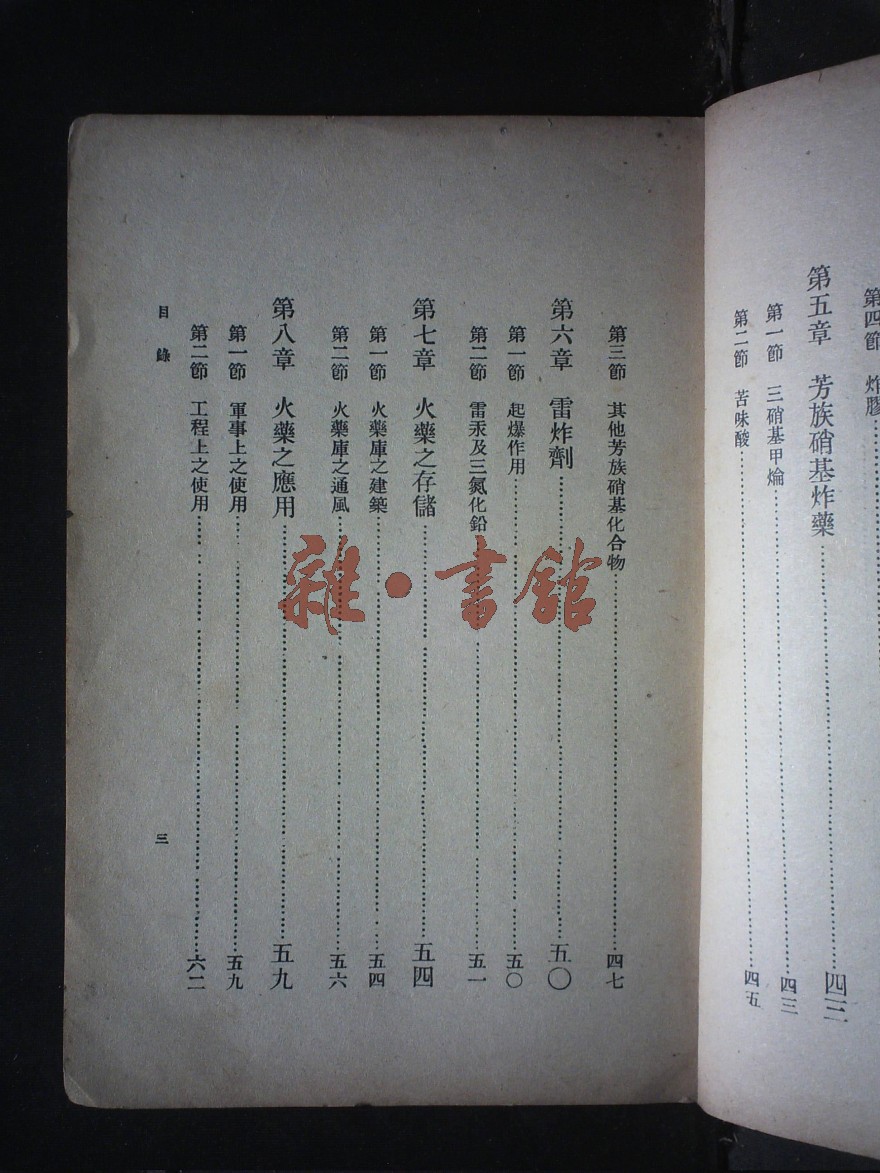 第四節 炸膠
第五章 芳族硝基炸藥 四三
第一節 三硝基甲爚 四三
第二節 苦味酸 四五
第三節 其他芳族硝基化合物 四七
第六章 雷炸劑 五〇
第一節 起爆作用 五〇
第二節 雷汞及三氮化鉛 五一
第七章 火藥之存儲 五四
第一節 火藥庫之建築 五四
第二節 火藥庫之通風 五六
第八章 火藥之應用 五九
第一節 軍事上之使用 五九
第二節 工程上之使用 六二
目錄
三
雜·書館